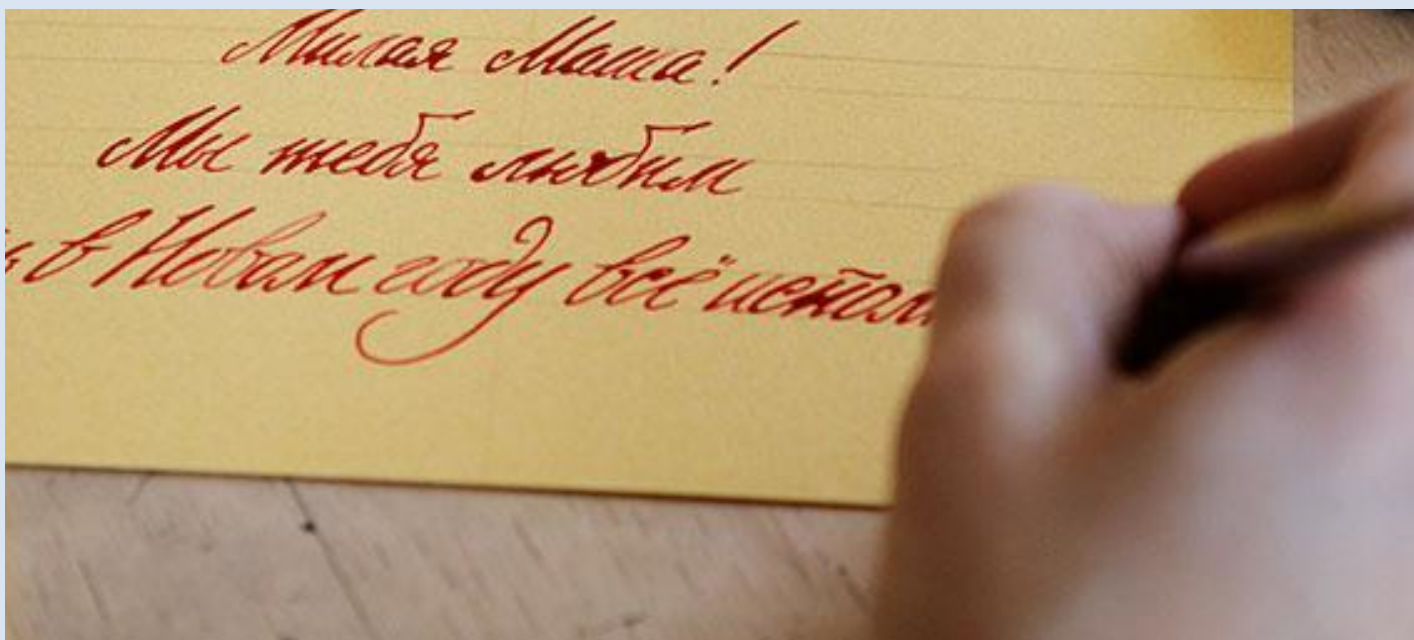 Милая Маша!
Мы тебя любим
в Новом году всё